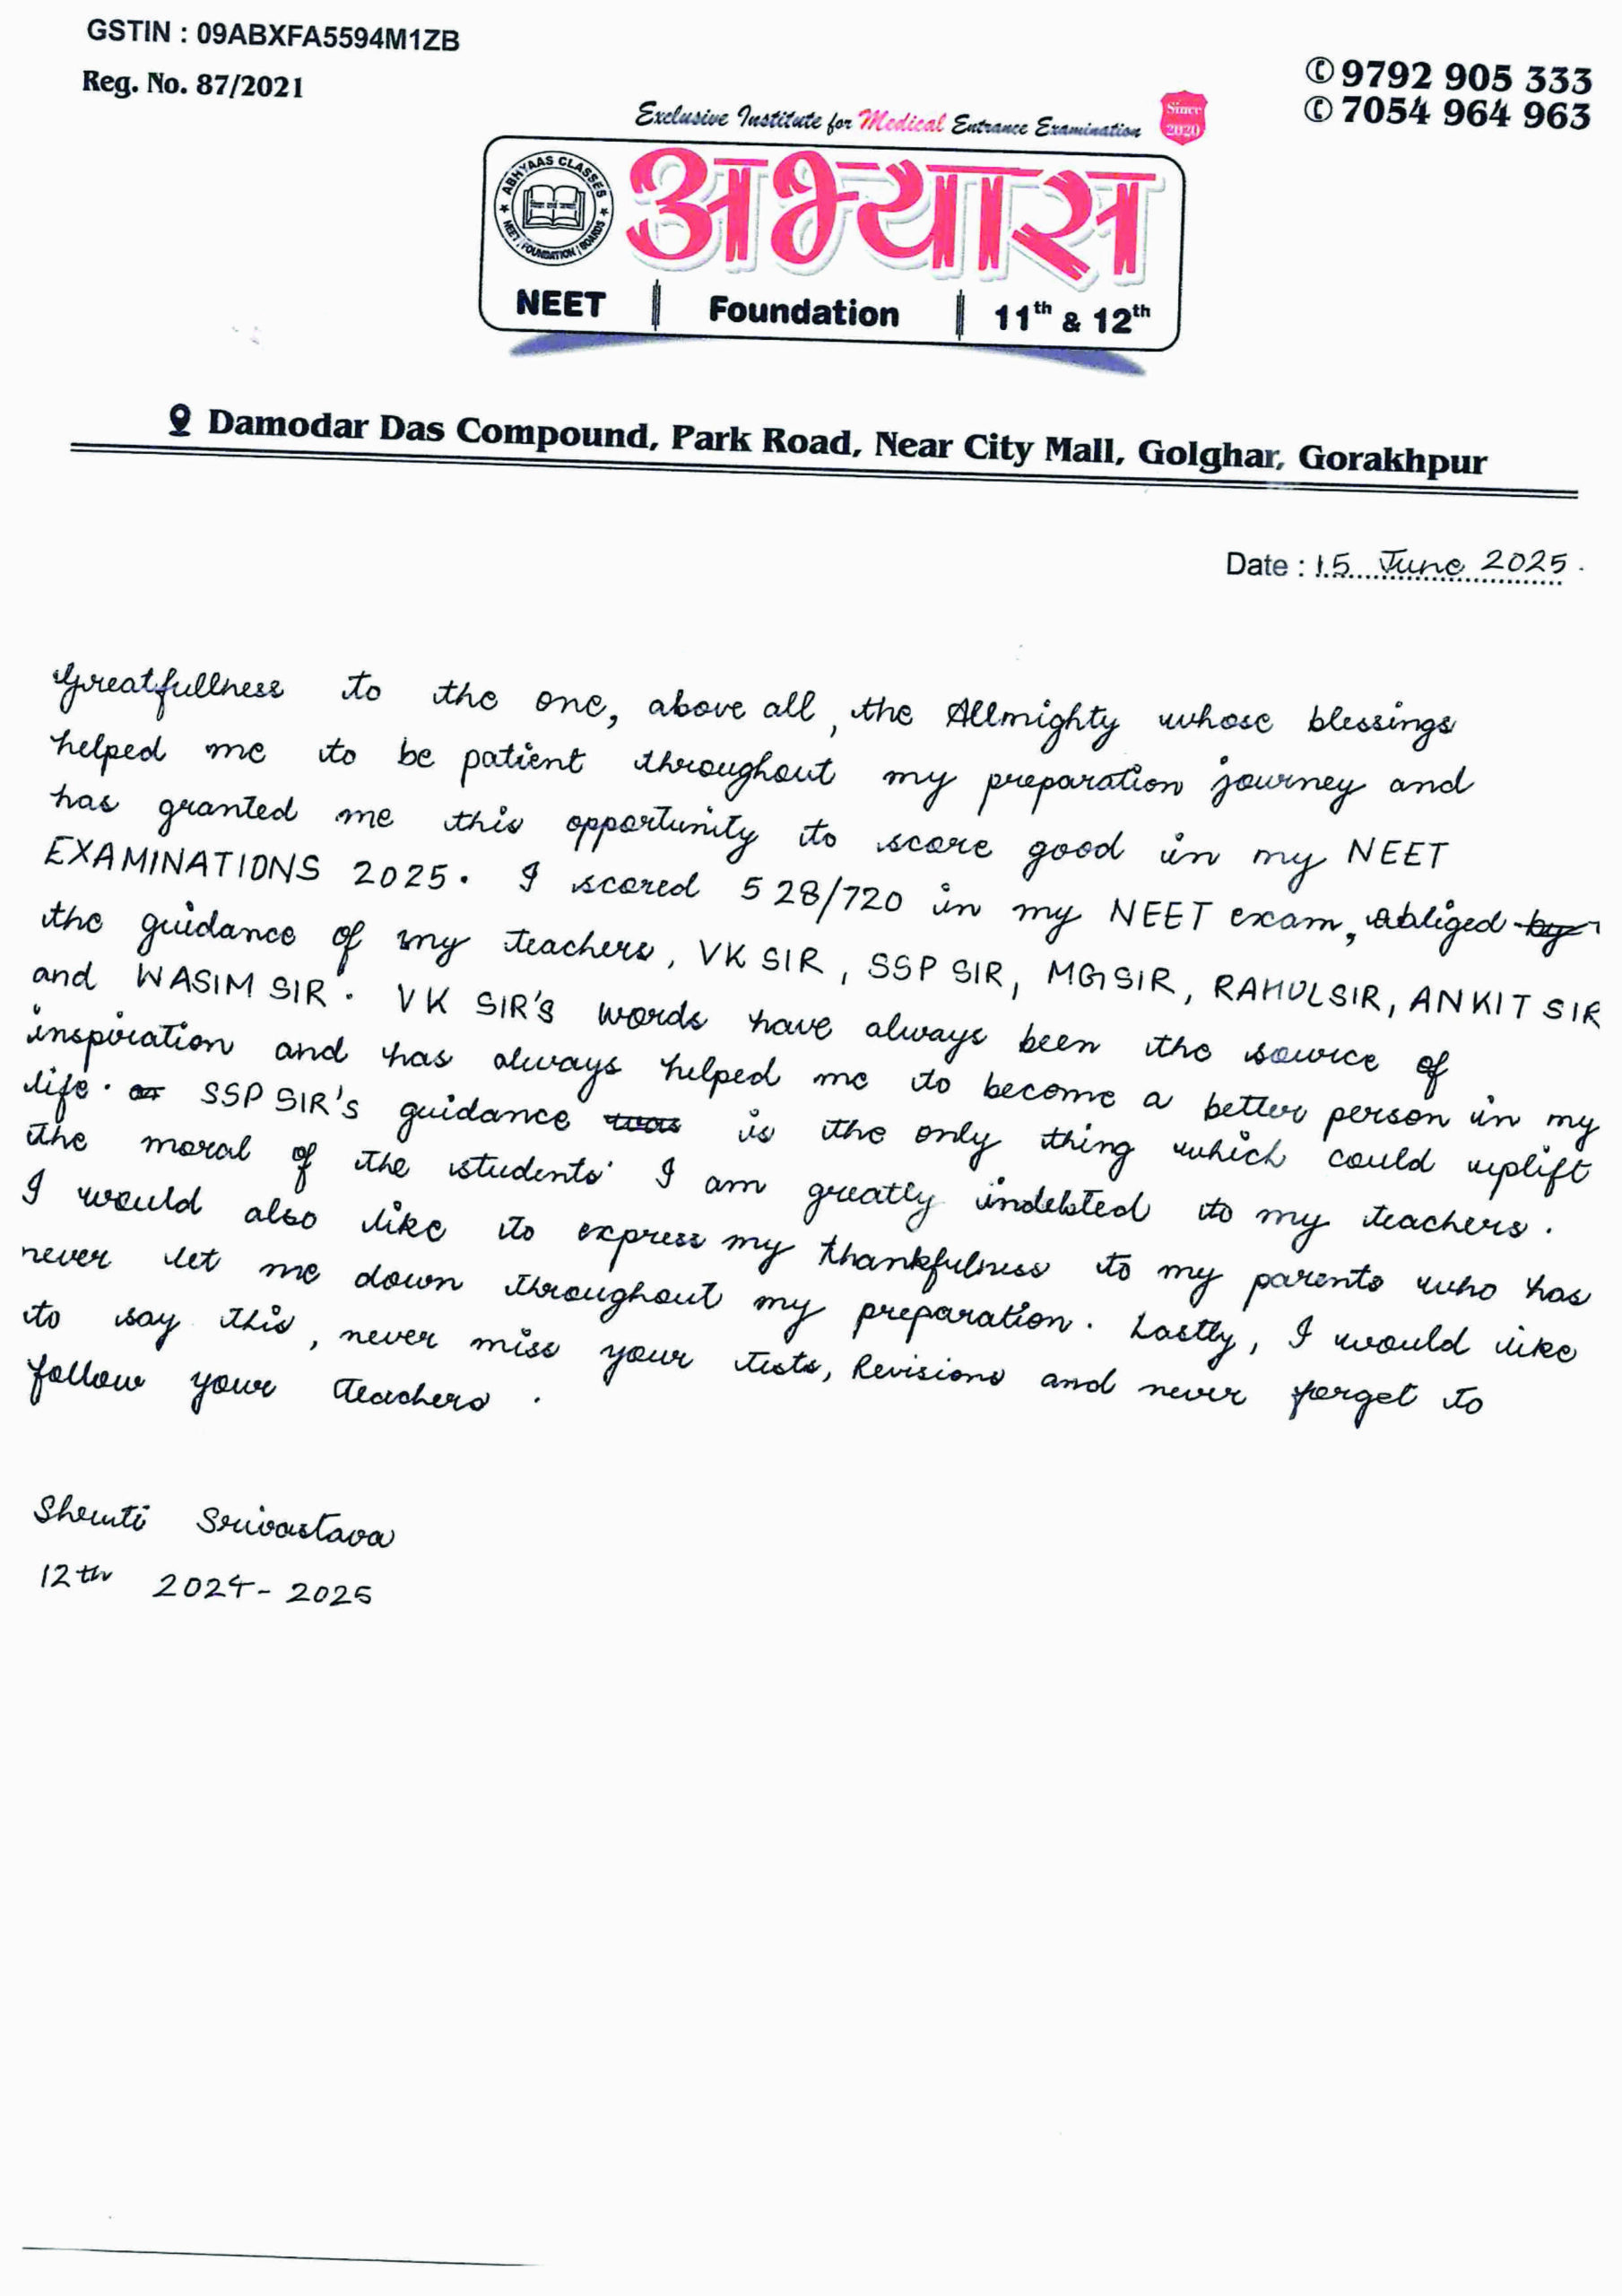 GSTIN : 09ABXFA5594M1ZB
Reg. No. 87/2021
✆ 9792 905 333
✆ 7054 964 963
Exclusive Institute for Medical Entrance Examination
Since 2020
ABHYAAS CLASSES
NEET | FOUNDATION | BOARDS
अभ्यास
NEET | Foundation | 11th & 12th
Damodar Das Compound, Park Road, Near City Mall, Golghar, Gorakhpur
Date : 15 June 2025.
Greatfullness to the one, above all, the Allmighty whose blessings
helped me to be patient throughout my preparation journey and
has granted me this opportunity to score good in my NEET
EXAMINATIONS 2025. I scored 528/720 in my NEET exam, obliged by
the guidance of my teachers, VK SIR, SSP SIR, MG SIR, RAHUL SIR, ANKIT SIR
and WASIM SIR. VK SIR's words have always been the source of
inspiration and has always helped me to become a better person in my
life. SSP SIR's guidance was is the only thing which could uplift
the moral of the students. I am greatly indebted to my teachers.
I would also like to express my thankfulness to my parents who has
never let me down throughout my preparation. Lastly, I would like
to say this, never miss your tests, Revisions and never forget to
follow your teachers.
Shruti Srivastava
12th 2024-2025